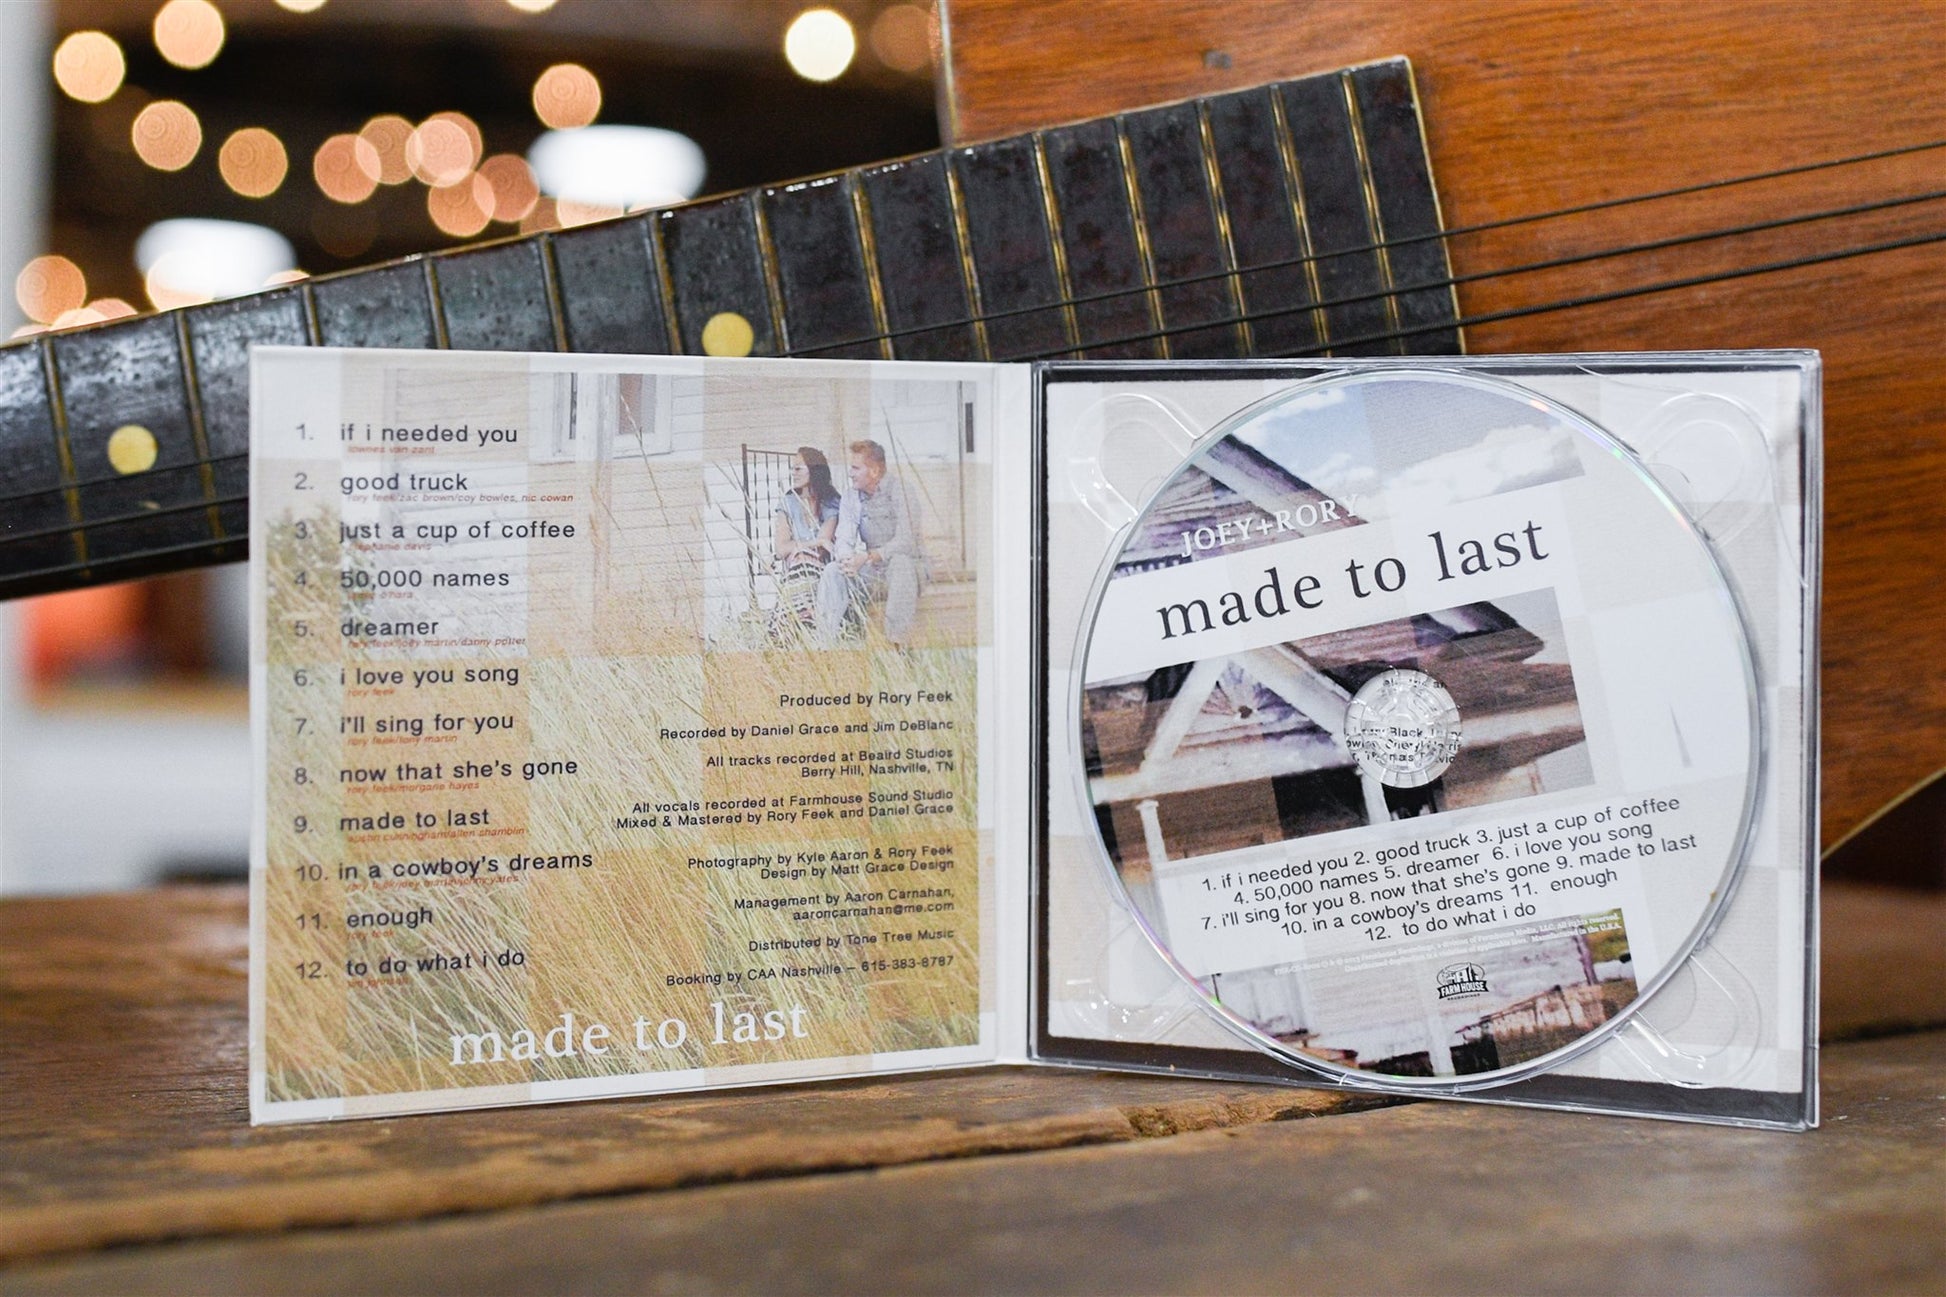 1. if i needed you
townes van zant
2. good truck
rory feek/zac brown/coy bowles, nic cowan
3. just a cup of coffee
stephanie davis
4. 50,000 names
jamie o'hara
5. dreamer
rory feek/joey martin/danny potter
6. i love you song
rory feek
7. i'll sing for you
rory feek/tony martin
8. now that she's gone
rory feek/morgane hayes
9. made to last
austin cunningham/allen shamblin
10. in a cowboy's dreams
rory feek/joey martin/
11. enough
rory feek
12. to do what i do
Produced by Rory Feek
Recorded by Daniel Grace and Jim DeBlanc
All tracks recorded at Beaird Studios
Berry Hill, Nashville, TN
All vocals recorded at Farmhouse Sound Studio
Mixed & Mastered by Rory Feek and Daniel Grace
Photography by Kyle Aaron & Rory Feek
Design by Matt Grace Design
Management by Aaron Carnahan,
aaroncarnahan@me.com
Distributed by Tone Tree Music
Booking by CAA Nashville – 615-383-8787
made to last
JOEY+RORY
made to last
Black
1. if i needed you 2. good truck 3. just a cup of coffee
4. 50,000 names 5. dreamer 6. i love you song
7. i'll sing for you 8. now that she's gone 9. made to last
10. in a cowboy's dreams 11. enough
12. to do what i do
Farmhouse Recordings, a division of Farmhouse Media, LLC. All rights reserved.
Unauthorized duplication is a violation of applicable laws. Manufactured in the U.S.A.
FARM HOUSE
RECORDINGS